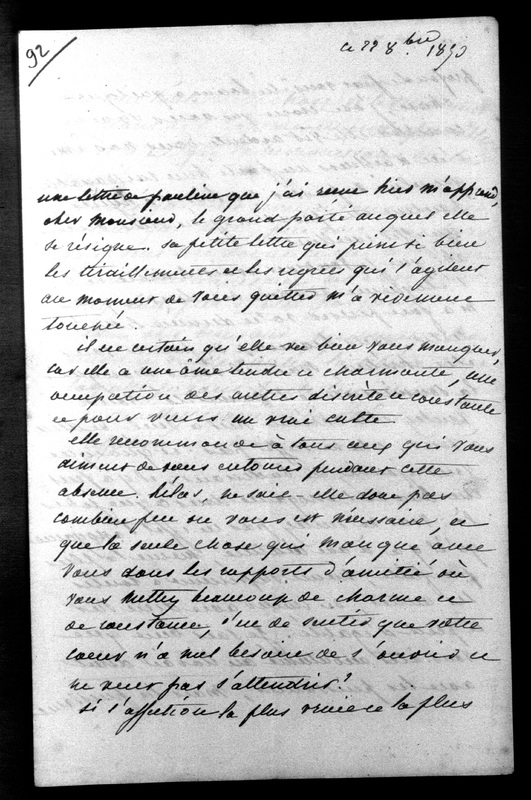 92
ce 22 8bre 1890
une lettre de pauline que j'ai reçue hier m'apprend,
cher Monsieur, le grand parti auquel elle
se résigne. sa petite lettre qui peint si bien
les tiraillements et les regrets qui l'agitent
au moment de vous quitter m'a vivement
touchée.
il est certain qu'elle va bien vous manquer,
car elle a une âme tendre et charmante, une
occupation des autres discrète et constante
et pour vous un vrai culte
elle recommande à tous ceux qui vous
aiment de vous entourer pendant cette
absence. hélas, ne sait-elle donc pas
combien peu on vous est nécessaire, et
que la seule chose qui manque avec
vous dans les rapports d'amitié où
vous mettez beaucoup de charme et
de constance, c'est de sentir que votre
coeur n'a nul besoin de s'ouvrir et
ne veut pas s'attendrir?
si l'affection la plus vraie et la plus